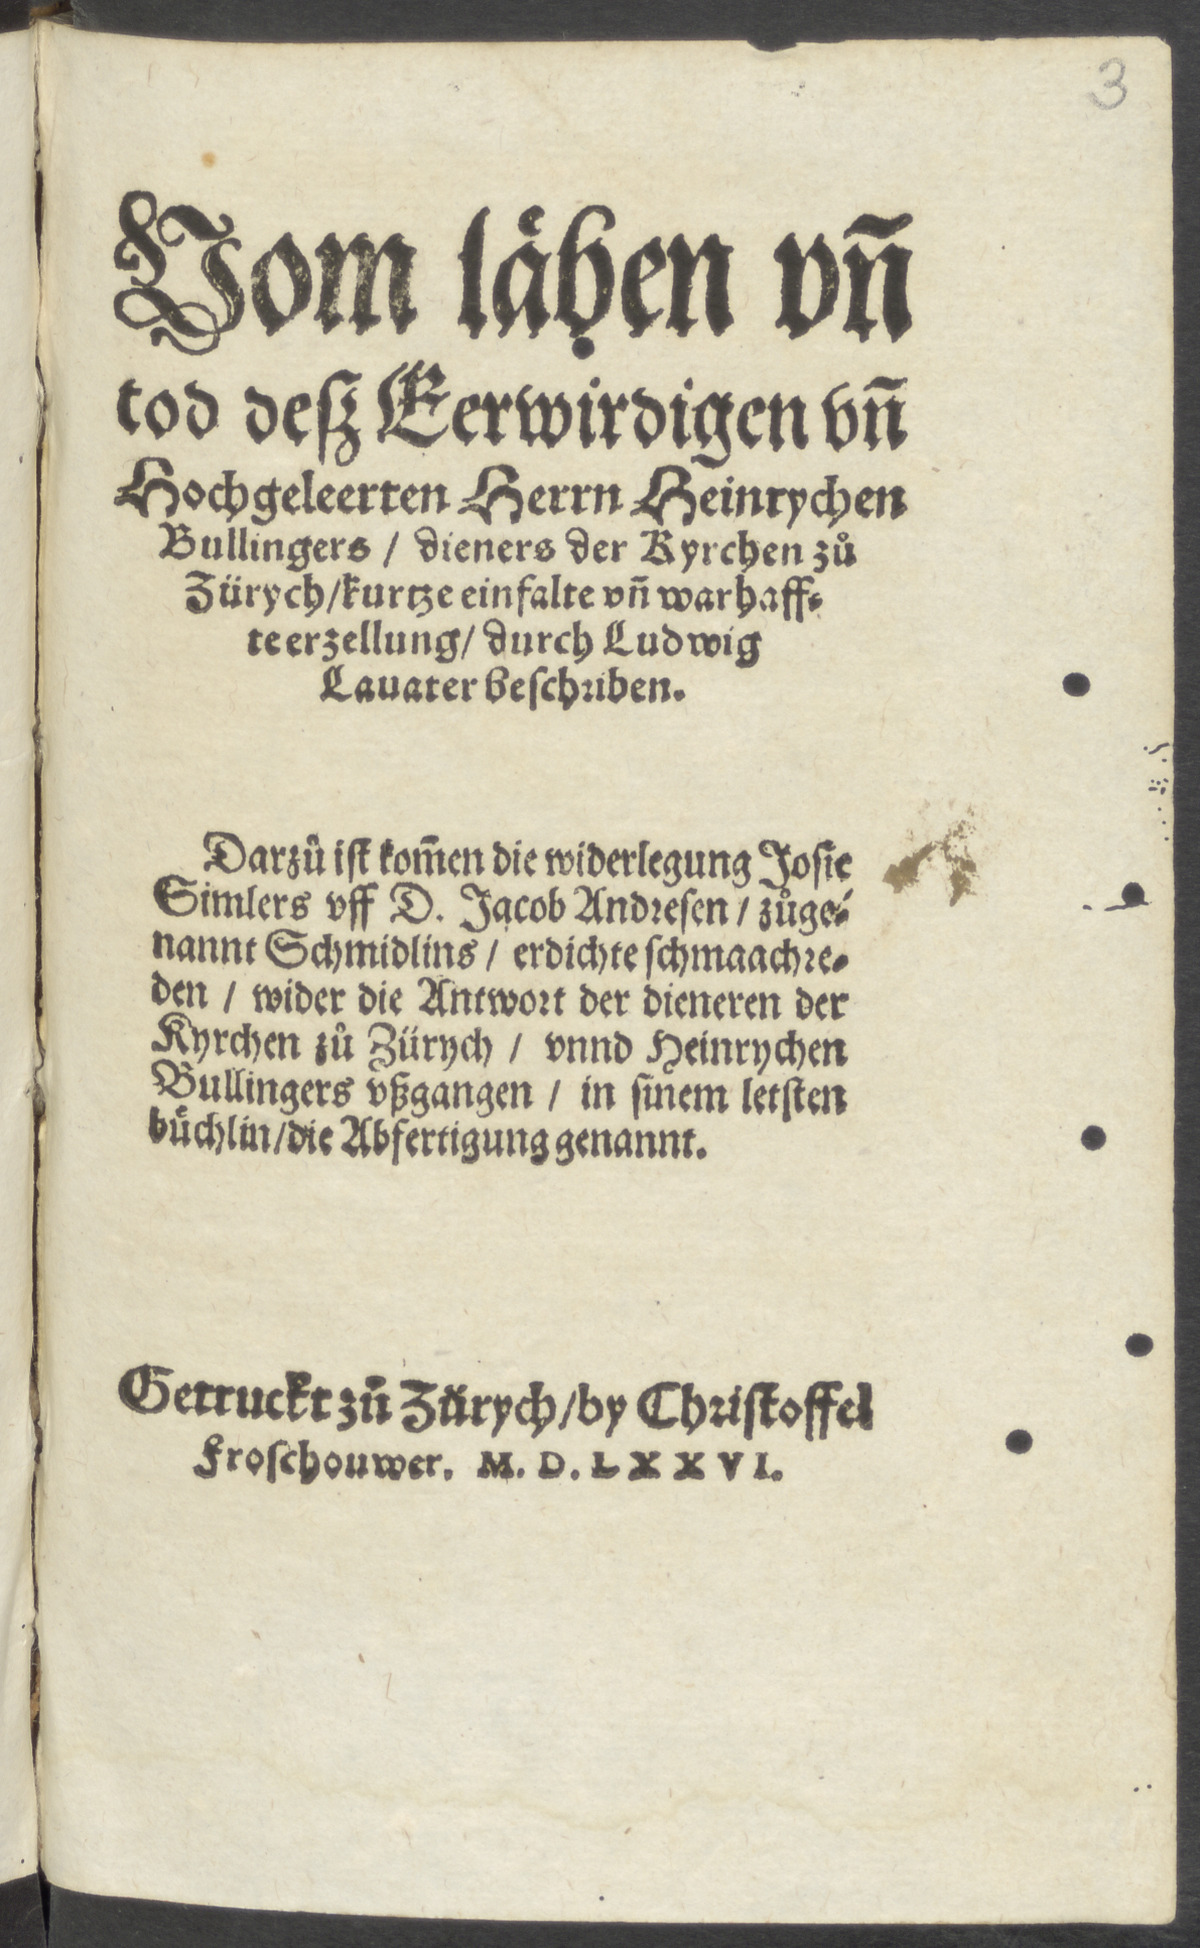 3
Vom läben vñ
tod deſz Eerwirdigen vñ
Hochgeleerten Herrn Heinrychen
Bullingers / dieners der Kyrchen zů
Zürych/kurtze einfalte vñ warhaff⸗
te erzellung/ durch Ludwig
Lauater beſchriben.
Darzů iſt kom̃en die widerlegung Joſie
Simlers vff D. Jacob Andreſen / zůge⸗
nannt Schmidlins / erdichte ſchmaachre⸗
den / wider die Antwort der dieneren der
Kyrchen zů Zürych / vnnd Heinrychen
Bullingers vßgangen / in ſinem letſten
büchlin/die Abfertigung genannt.
Getruckt zů Zürych/by Chriſtoffel
Froſchouwer. M. D. LXXVI.